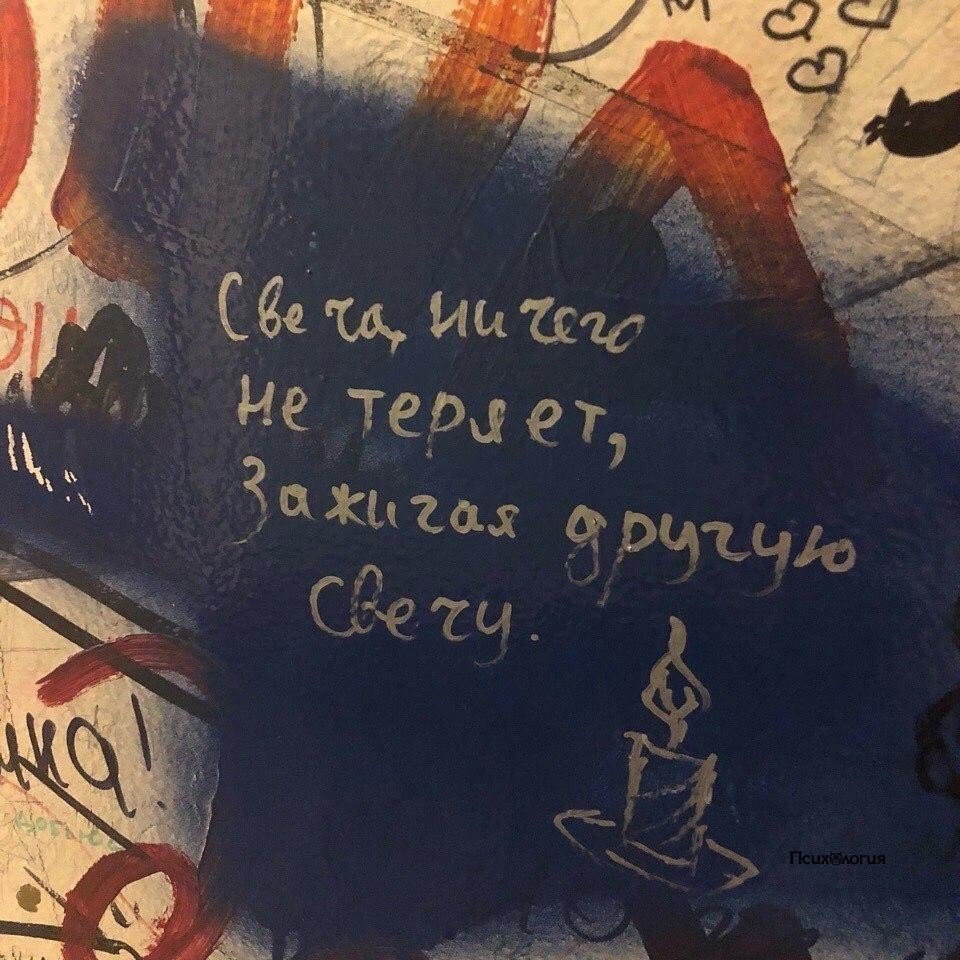 Свеча, ничего
не теряет,
Зажигая другую
свечу.
Психология